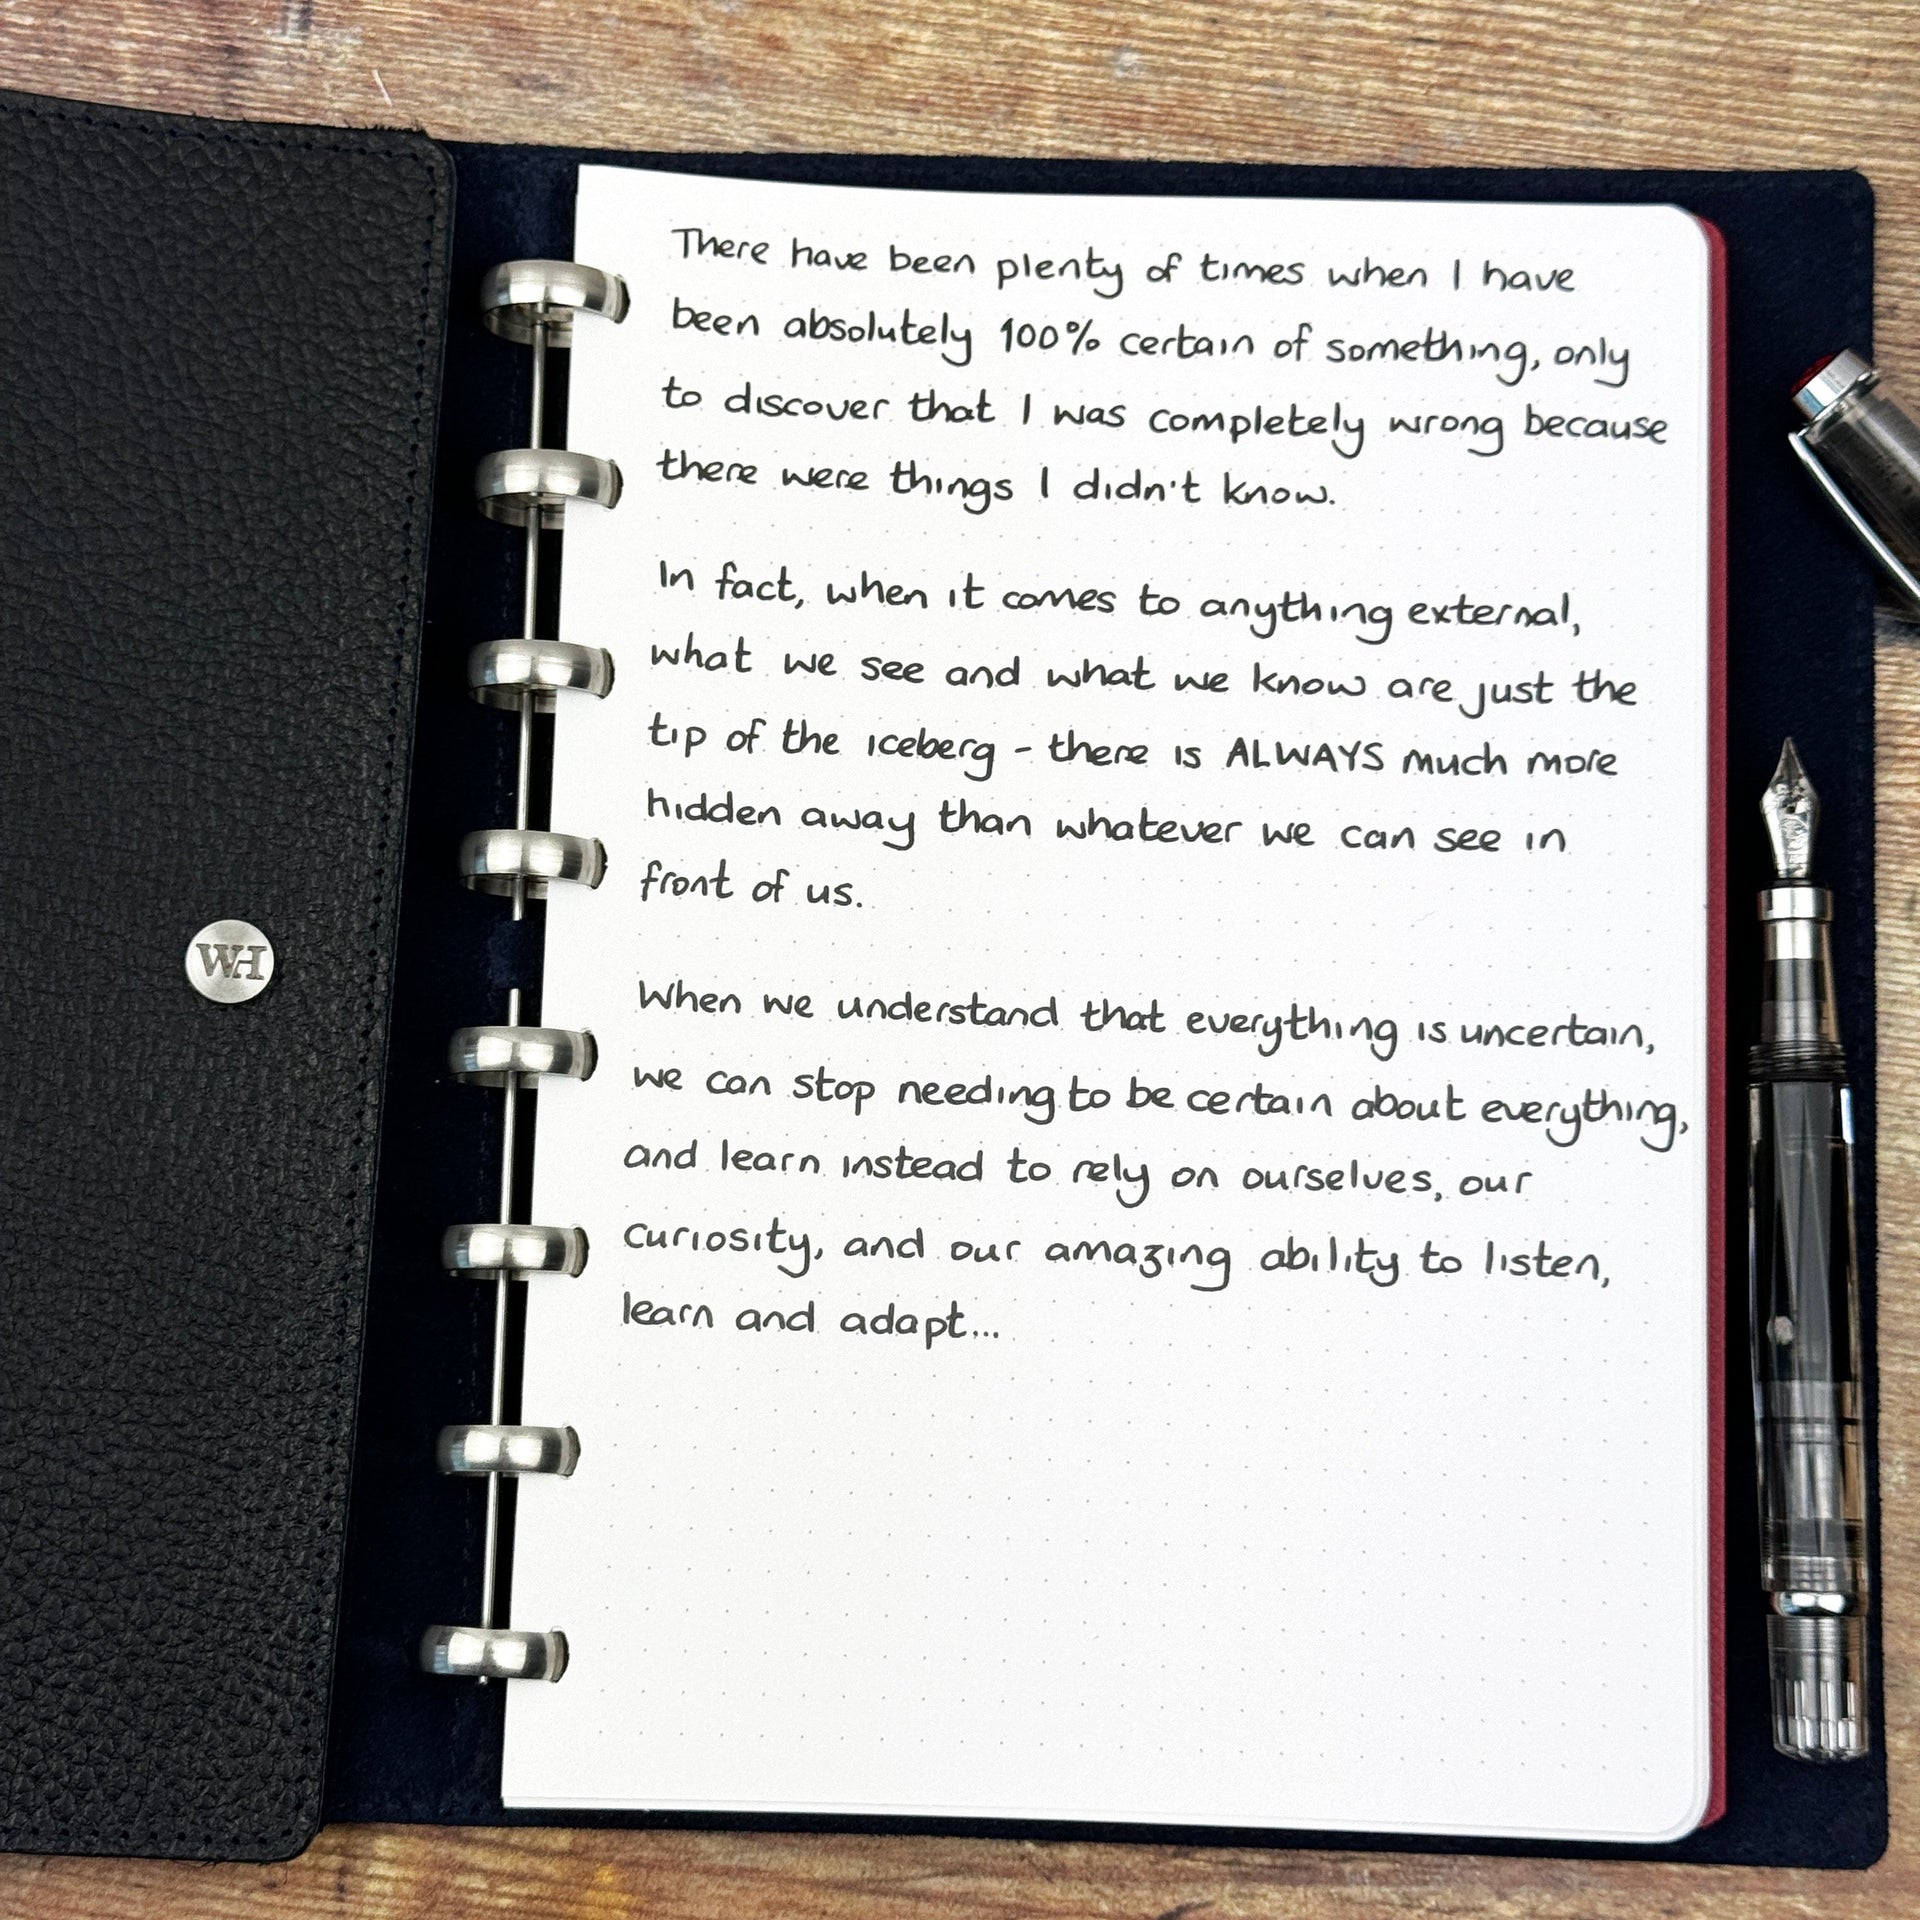 There have been plenty of times when I have
been absolutely 100% certain of something, only
to discover that I was completely wrong because
there were things I didn't know.
In fact, when it comes to anything external,
what we see and what we know are just the
tip of the iceberg - there is ALWAYS much more
hidden away than whatever we can see in
front of us.
When we understand that everything is uncertain,
we can stop needing to be certain about everything,
and learn instead to rely on ourselves, our
curiosity, and our amazing ability to listen,
learn and adapt...
WH